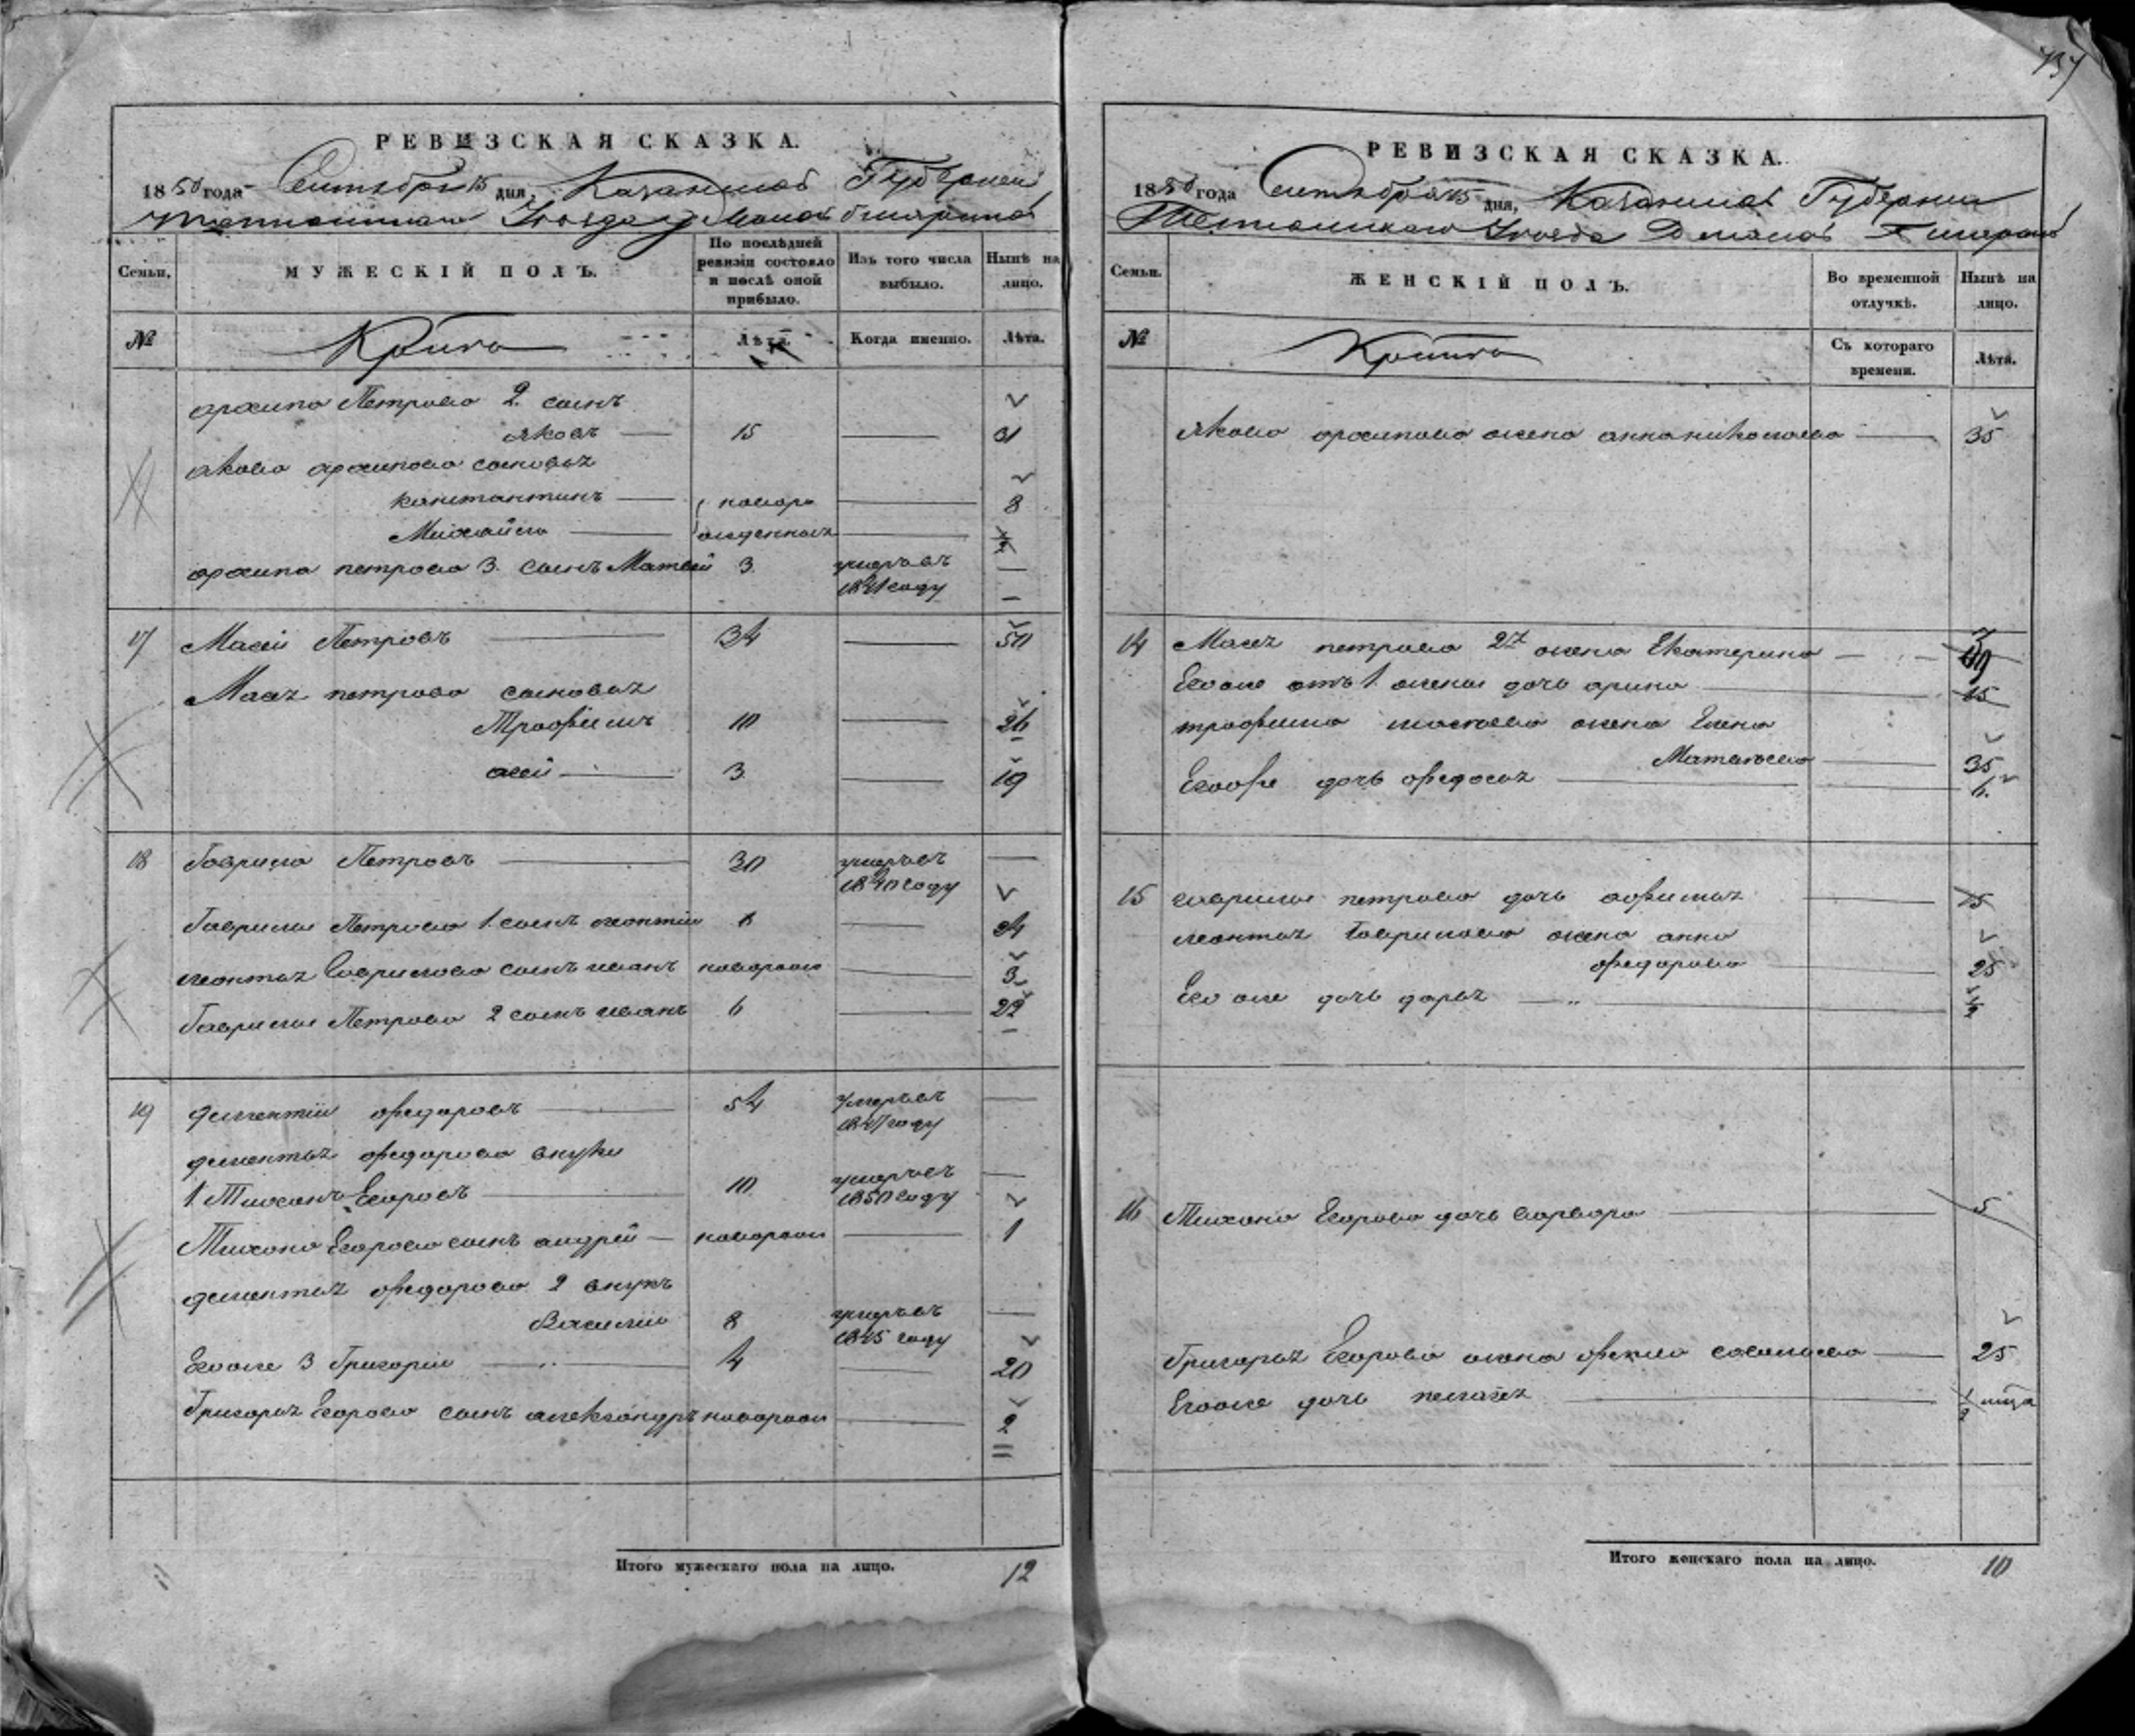 737
РЕВИЗСКАЯ СКАЗКА.
1850 года Сентября 15 дня, Казанской Губерніи
Тетюшскаго Уѣзда
Семьи.
МУЖЕСКІЙ ПОЛЪ.
По послѣдней ревизіи состояло и послѣ оной прибыло.
Изъ того числа выбыло.
Нынѣ на лицо.
№
Лѣта.
Когда именно.
Лѣта.
архипа Петрова 2 сынъ
яковъ 15 31
якова архипова сыновья
константинъ новоро 8
Михайла жденныя 1/2
архипа петрова 3. сынъ Матвей 3. умеръ въ
1841 году
17 Масей Петровъ 34 50
Масея петрова сыновья
Трофимъ 10 26
асей 3 19
18 Гаврила Петровъ 30 умеръ въ
1840 году
Гаврилы Петрова 1. сынъ леонтій 8 24
леонтья Гаврилова сынъ иванъ новорож 3
Гаврилы Петрова 2 сынъ иванъ 6 22
19 дементій федоровъ 54 умеръ въ
1847 году
дементья федорова внуки
1 Тихонъ Егоровъ 10 умеръ въ
1850 году
Тихона Егорова сынъ андрей новорож 1
дементья федорова 2 внукъ
Василий 8 умеръ въ
1845 году
Его же 3 Григорій 4 20
Григорья Егорова сынъ александръ новорож 2
Итого мужескаго пола на лицо. 12
РЕВИЗСКАЯ СКАЗКА.
1850 года Сентября 15 дня, Казанской Губерніи
Тетюшскаго Уѣзда
Семьи.
ЖЕНСКІЙ ПОЛЪ.
Во временной отлучкѣ.
Нынѣ на лицо.
№
Съ котораго времени.
Лѣта.
якова архипова жена анна николаева 35
14 Масея петрова 2я жена Екатерина
Его же отъ 1. жены дочь арина 15
трофима масеева жена Елена
Матвеева 35
Его же дочь федосья 6.
15 гаврилы петрова дочь афимья 15
леонтья Гаврилова жена анна
федорова 25
Его же дочь дарья 1/2
16 Тихона Егорова дочь варвара 5
Григорья Егорова жена фекла савельева 25
Его же дочь пелагея 1/2
Итого женскаго пола на лицо. 10